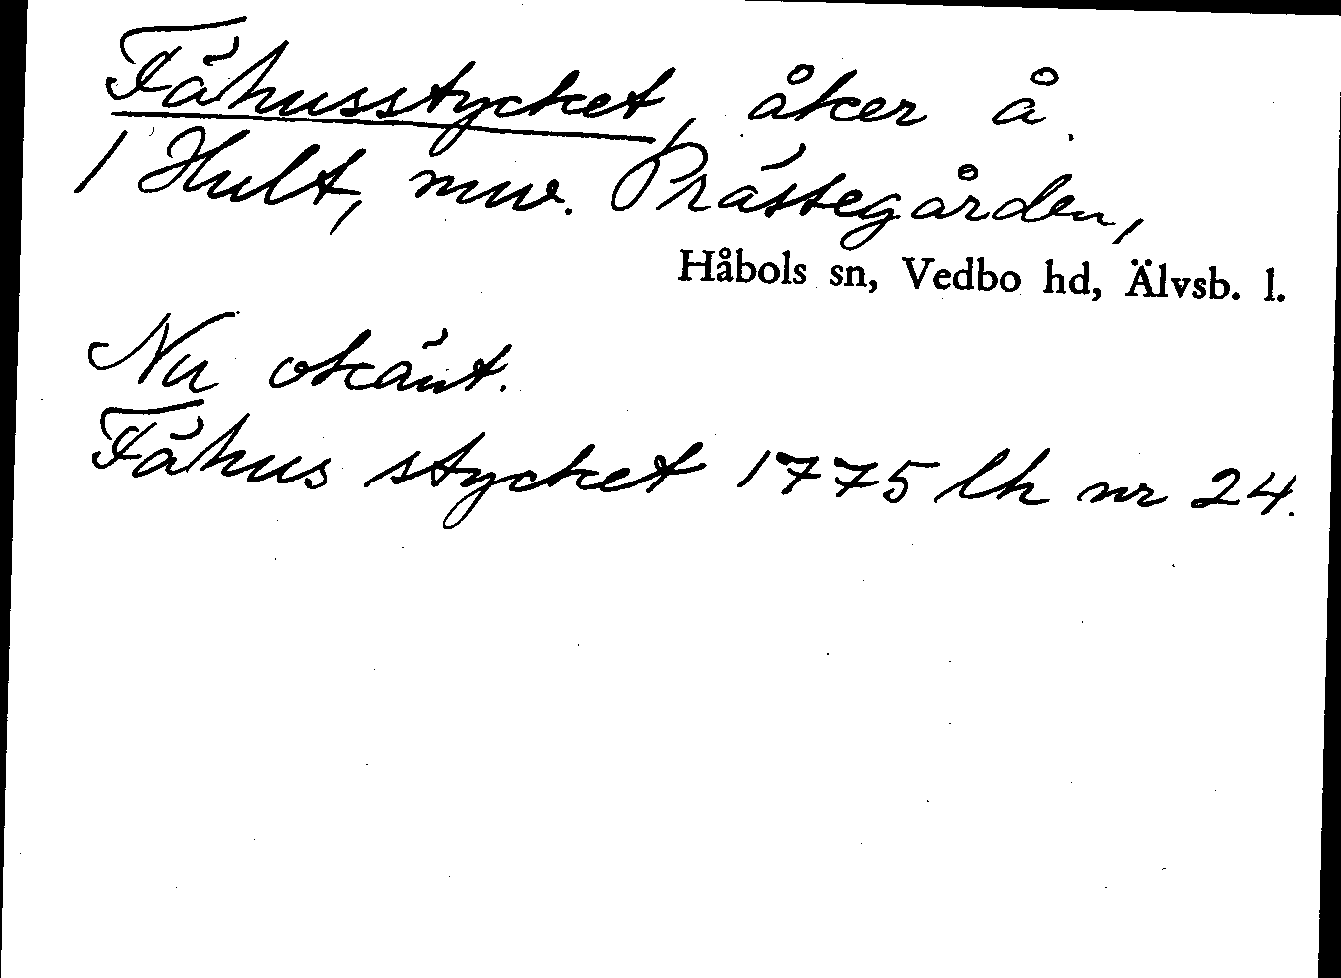 Fähusstycket, åker å.
1 Hult, nuv. Prästegården,
Håbols sn, Vedbo hd, Älvsb. l.
Nu okänt.
Fähus stycket 1775 lh nr 24.